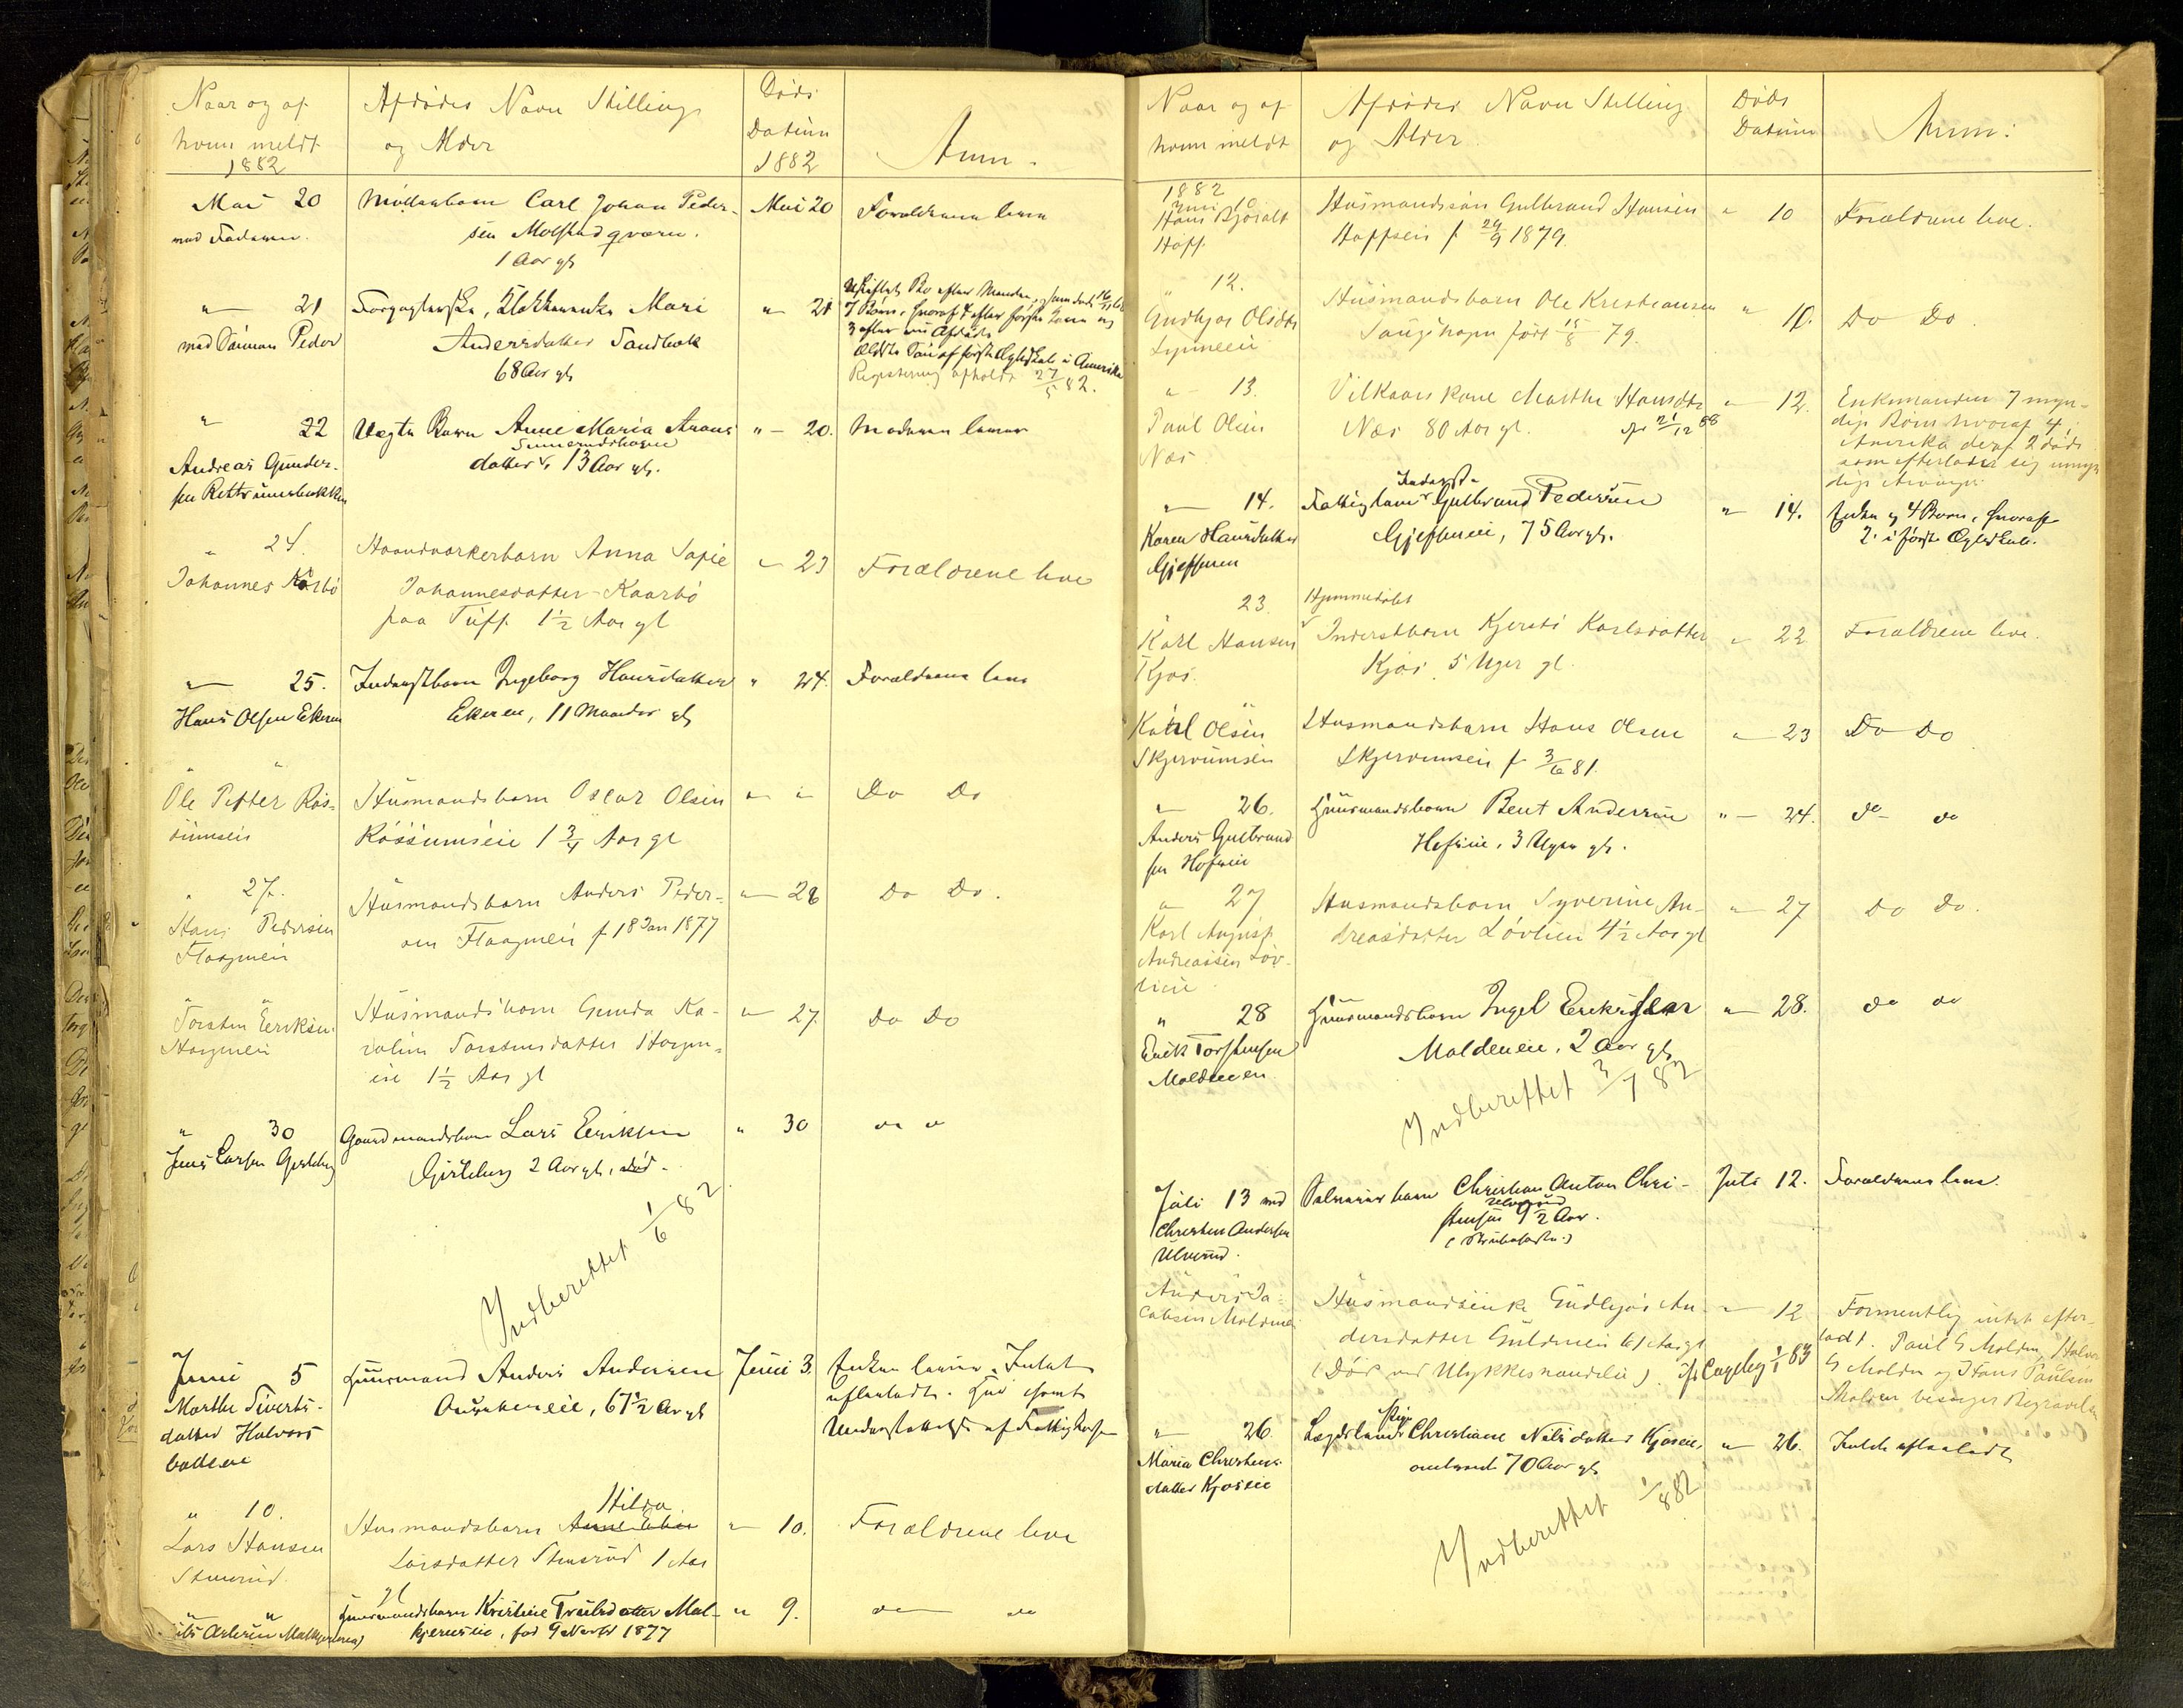 Naar og af
hvem meldt
1882
Afdødes Navn Stilling
og Alder
Døds
Datum
1882
Anm.
Mai 20
med Faderen.
Møllerbarn Carl Johan Peder-
sen Molstadqværn.
1 Aar gl
Mai 20
Forældrene leve
" 21
med Sønnen Peder
Mari
Andersdatter Sandbæk
68 Aar gl
" 21
Uskiftet Bo efter Manden, som døde
7 Børn, hvoraf 4 efter første Kone og
3 efter nu Afdøde
Ældste Søn af første Ægteskab i Amerika
Registrering afholdt 27/5 82.
" 22
Andreas Gunder-
sen
Lægds Barn Anne Maria Arans
datter 13 Aar gl.
" 20.
Moderen lever
" 24.
Johannes Kårbø
Haandværkerbarn Anna Sofie
Johannesdatter Kaarbø
paa Tuff. 1½ Aar gl
" 23
Forældrene leve
" 25.
Hans Olsen Ekeren
Inderstbarn Ingeborg Hansdatter
Ekeren, 11 Maaneder gl
" 24.
Forældrene leve
" "
Ole Petter Røs-
sumseie
Husmandsbarn Oscar Olsen
Røssumseie 1¾ Aar gl
" "
Do Do
" 27.
Hans Pedersen
Flaagneie
Husmandsbarn Anders Peder-
sen Flaagneie f. 18 Jan 1877
" 26
Do Do.
" "
Torsten Eriksen
Horgneie
Husmandsbarn Gunda Ka-
roline Torstensdatter Horgn-
eie 1½ Aar gl
" 27.
Do Do
" 30
Jens Larsen
Gaardmandsbarn Lars Eriksen
2 Aar gl, død.
" 30
do do
Indberettet 1/6 82
Juni 5
Marthe Siverts-
datter Halvors
bakken
Huusmand Anders Andersen
67½ Aar gl
Juni 3.
Enken lever. Intet
efterladt.
Understøttelse af Fattigkassen
" 10.
Lars Hansen
Stensrud.
Hilda
Husmandsbarn
Larsdatter Stensrud 1 Aar
gl
" 10.
Forældrene leve
" "
Huusmandsbarn Kristine Truulsdatter Mal-
kjernseie, fød 9 Novbr 1877
" 9.
do do
Naar og af
hvem meldt
Afdødes Navn Stilling
og Alder
Døds
Datum
Anm:
1882
Juni 10
Hans Bjøralt
Hoff.
Husmandssøn Gulbrand Hansen
Hoffseie f. 29/9 1879.
" 10
Forældrene leve.
" 12.
Gudbjør Olsdtr
Husmandsbarn Ole Kristiansen
født 15/8 79.
" 10.
Do Do.
" 13.
Paul Olsen
Næs
Vilkaarskone Marthe Hansdtr
Næs 80 Aar gl.
" 12.
Enkemanden 7 myn-
dige Børn hvoraf 4 i
Amerika deraf 2 døde
som efterlader sig umyn
dige Arvinger
" 14.
Karen Hansdatter
Inderst
Fattiglem Gulbrand Pedersen
75 Aar gl.
" 14.
Enken og 4 Børn, hvoraf
2 i første Ægteskab.
" 23.
Karl Hansen
Kjos.
Hjemmedøbt
Inderstbarn Kjersti Karlsdatter
Kjos. 5 Uger gl.
" 22
Forældrene leve.
"
Karl Olsen
Skjervumseie
Husmandsbarn Hans Olsen
Skjervumseie f. 3/6 81.
" 23
Do Do
" 26.
Anders Gulbrand
sen Hofseie
Huusmandsbarn Bent Andersen
Hofseie, 3 Uger gl.
" 24.
do do
" 27
Karl August
Andreassen Løv-
lien
Husmandsbarn Syverine An-
dreasdatter Løvlien 4½ Aar gl
" 27
Do Do.
" 28
Erik Torstensen
Moldeneie
Huusmandsbarn Ingel Eriksen
Moldeneie, 2 Aar gl
" 28.
do do
Indberettet 3/7 82
Juli 13 ved
Christen Andersen
Ulverud.
Christian Anton Chri-
stensen 9½ Aar.
(Strubehoste.)
Juli 12.
Forældrene leve.
Anders Ja-
cobsen Moldeneie
Husmandsenke Gudbjør An-
dersdatter Guldeneie 61 Aar gl
(Død ved Ulykkeshændelse)
" 12
Formentlig intet efter-
ladt. Paul G Molden, Halvor
G Molden og Hans Paulsen
Molden besørger Begravelsen
" 26.
Maria Christens-
datter Kjoseie
Pige
Lægdslem Christiane Nilsdatter Kjoseie,
omtrent 70 Aar gl
" 26.
Intet efterladt
Indberettet 1/8 82